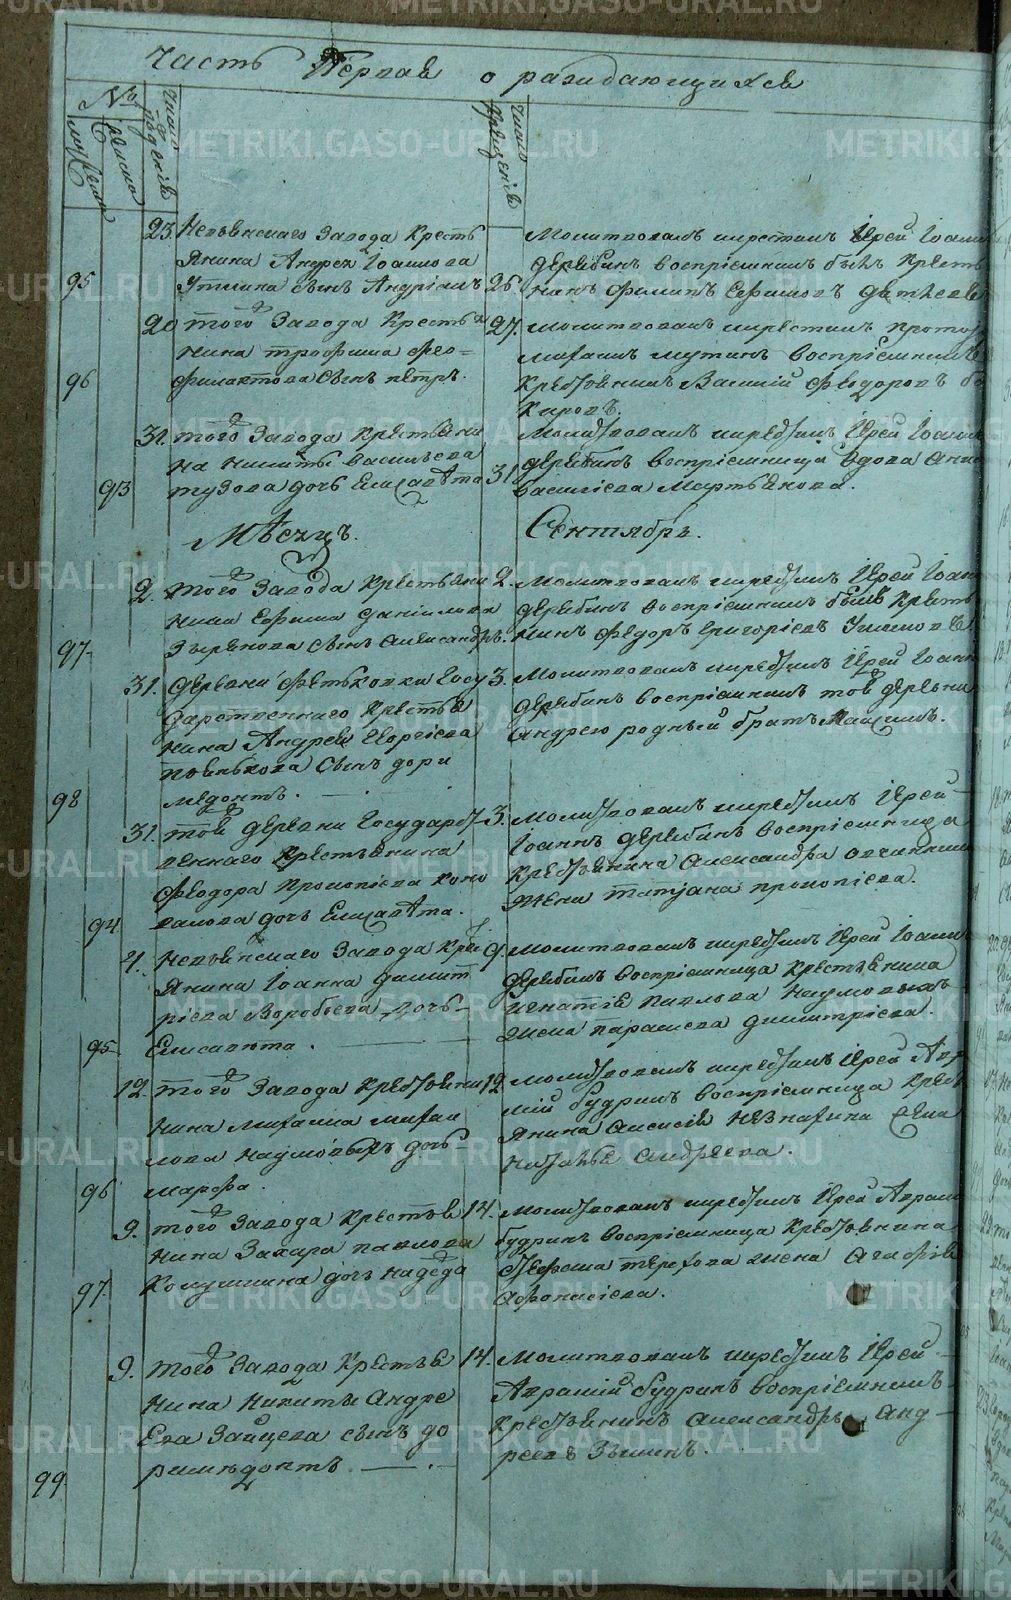 Часть Первая о раждающихся
№
мужеска
женска
Число рожденія
Число крещенія
23. Невьянскаго Завода Кресть
янина Андрея Іоаннова
95 Уткина сынъ Андріанъ 26
Молитвовалъ и крестилъ Іерей Іоаннъ
Дерябинъ воспріемникъ былъ Кресть
нинъ Филипъ Ефимовъ
20 того Завода Крестья 27.
нина Трофима Фео=
96 филактова сынъ Петръ.
Молитвовалъ и крестилъ
Михаилъ воспріемникъ
Крестьянинъ Василій Феодоровъ
31. того Завода Крестьяни
на Никиты Васильева
93 тузова дочь Елисавета 31
Молитвовалъ и крестилъ Іерей Іоаннъ
Дерябинъ воспріемница вдова Анна
Василіева Мартьянова.
Мѣсяцъ. Сентябрь.
2. того Завода Крестьяни 2.
нина Ефима Даніилова
97. Зырянова сынъ Александръ.
Молитвовалъ и крестилъ Іерей Іоаннъ
Дерябинъ воспріемникъ былъ Кресть
нинъ Федоръ Григоріевъ
31. Деревни Федьковки Госу 3.
дарственнаго Крестья
нина Андрея Георгіева
Пьянкова сынъ Дори
98 медонтъ.
Молитвовалъ и крестилъ Іерей Іоаннъ
Дерябинъ воспріемникъ той деревни
Андрею родный братъ Максимъ.
31. той деревни Государст 3.
веннаго Крестьянина
Феодора Прокопіева Коно
94 валова дочь Елисавета.
Молитвовалъ и крестилъ Іерей
Іоаннъ Дерябинъ воспріемница
Крестьянина Александра
жена Татіана Прокопіева.
4. Невьянскаго Завода Крес 9.
янина Іоанна Димит
ріева Воробьева дочь
95 Елисавета.
Молитвовалъ и крестилъ Іерей Іоаннъ
Дерябинъ воспріемница Крестьянина
Игнатія Павлова Наумовыхъ
жена Параскева Димитріева.
12. того Завода Крестьяни 12
нина Михаила Михаи
лова Наумовыхъ дочь
96 Марфа.
Молитвовалъ и крестилъ Іерей Авра
мій Будринъ воспріемница Крест
янина Алексія Незнахина жена
Наталья Андреева.
9. того Завода Крестья 14.
нина Захара Павлова
97. Колушкина дочь Надежда
Молитвовалъ и крестилъ Іерей Аврамій
Будринъ воспріемница Крестьянина
Стефана Терехова жена Агафія
Афонасіева.
9. того Завода Крестья 14.
нина Никиты Андре
ева Зайцева сынъ До
99. римедонтъ
Молитвовалъ и крестилъ Іерей
Аврамій Будринъ воспріемникъ
Крестьянинъ Александръ Анд
реевъ Зыкинъ.
METRIKI.GASO-URAL.RU